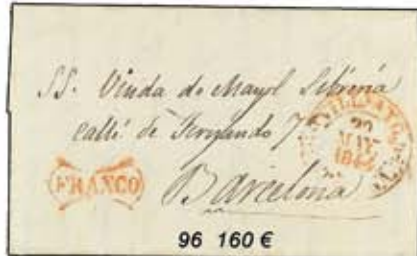 SS. Viuda de Mayol Librería
calle de Fernando 7º
Barcelona
FRANCO
20
MAY
96 160 €